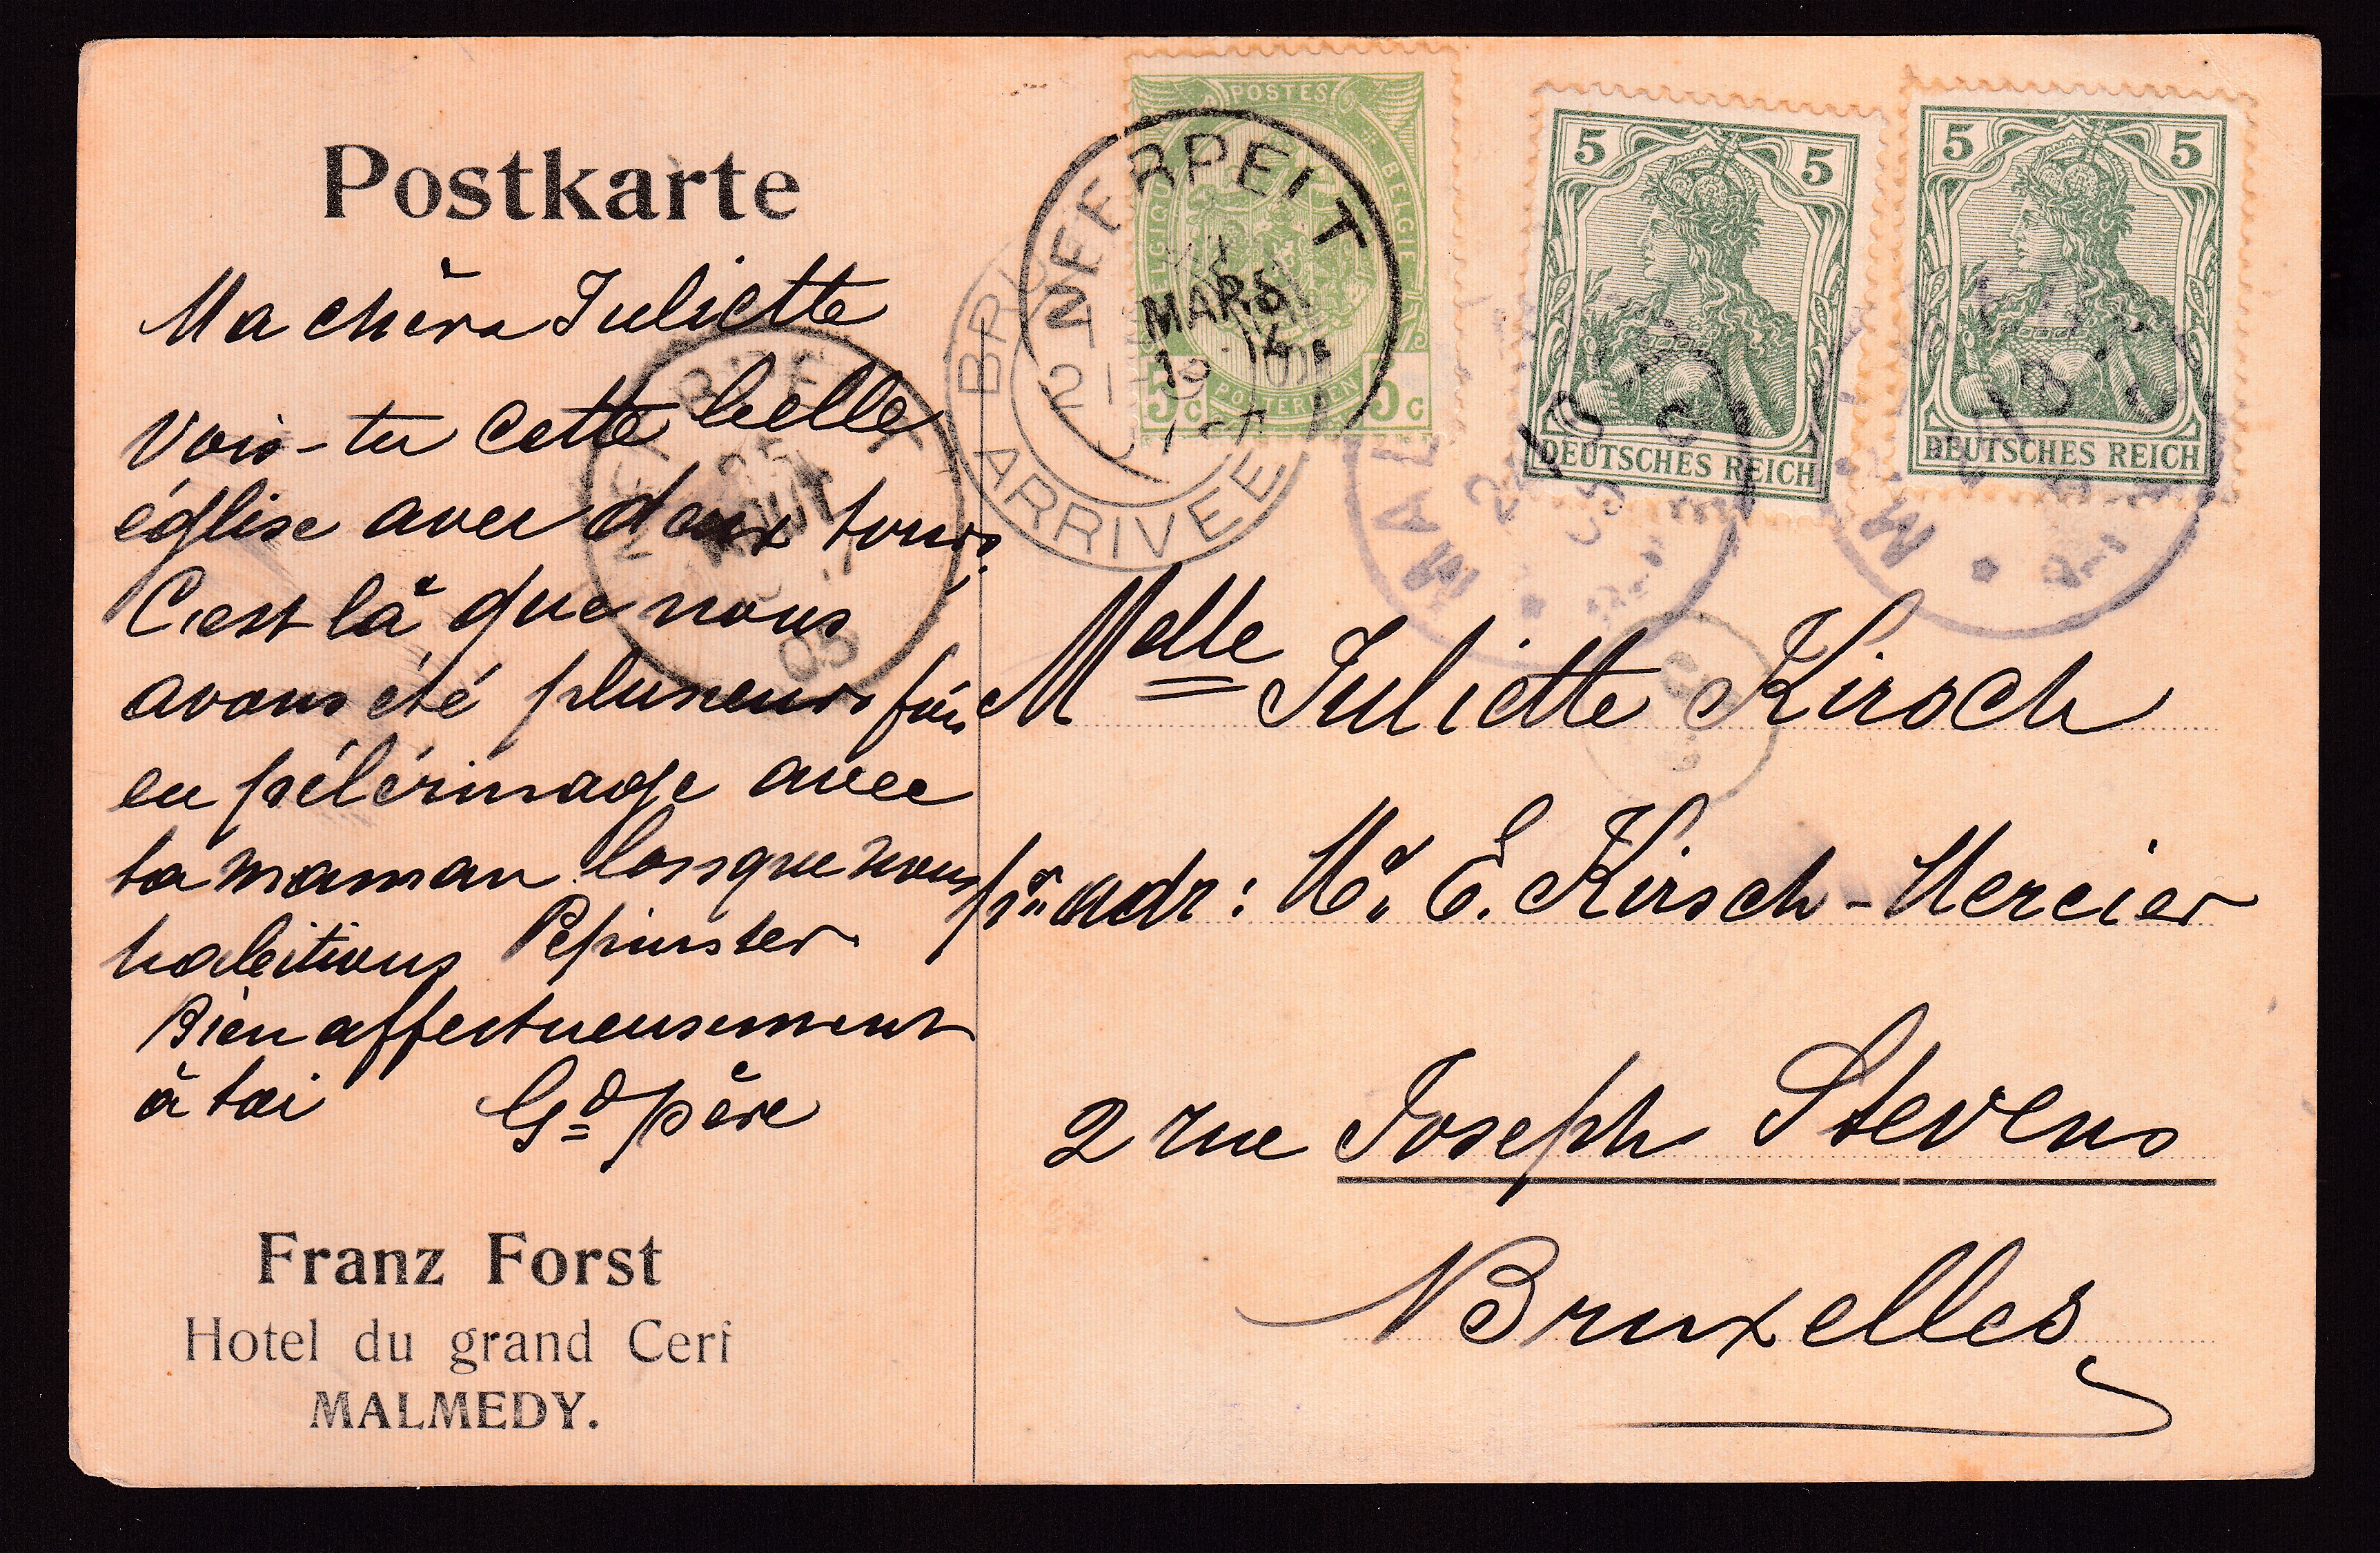 Postkarte
Ma chère Juliette
Vois-tu cette belle
église avec deux tours.
C'est là que nous
avons été plusieurs fois
en pélérinage avec
ta maman lorsque nous
habitions Pepinster
Bien affectueusement
à toi Gd père
Franz Forst
Hotel du grand Cerf
MALMEDY.
POSTES
BELGIQUE
BELGIE
POSTERIJEN
5c 5c
NEERPELT
MARS
14
BRU
ARRIVEE
5 5
DEUTSCHES REICH
5 5
DEUTSCHES REICH
MAL
05
Melle Juliette Kirsch
pr adr: Mr E. Kirsch-Mercier
2 rue Joseph Stevens
Bruxelles